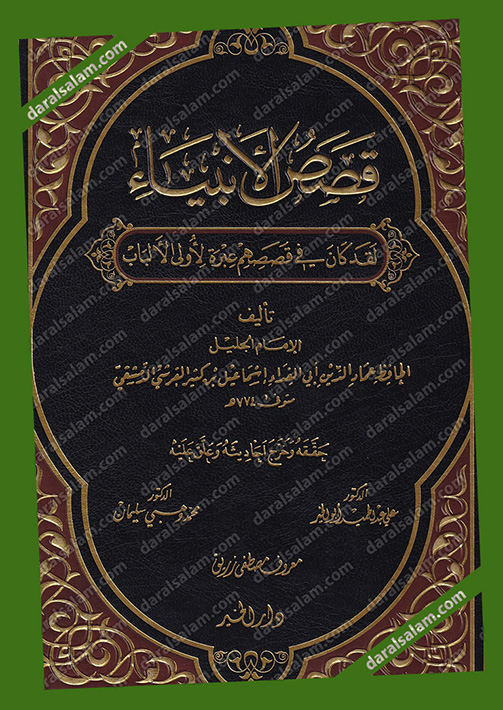 daralsalam.com
قصص الأنبياء
لقد كان في قصصهم عبرة لأولي الألباب
تأليف
الإمام الجليل
الحافظ عماد الدين أبي الفداء إسماعيل بن كثير القرشي الدمشقي
متوفى ٧٧٤هـ
حققه وخرج أحاديثه وعلق عليه
الدكتور
علي عبد الحميد أبو الخير
الدكتور
محمد وهبي سليمان
معروف مصطفى زريق
دار الخير
daralsalam.com